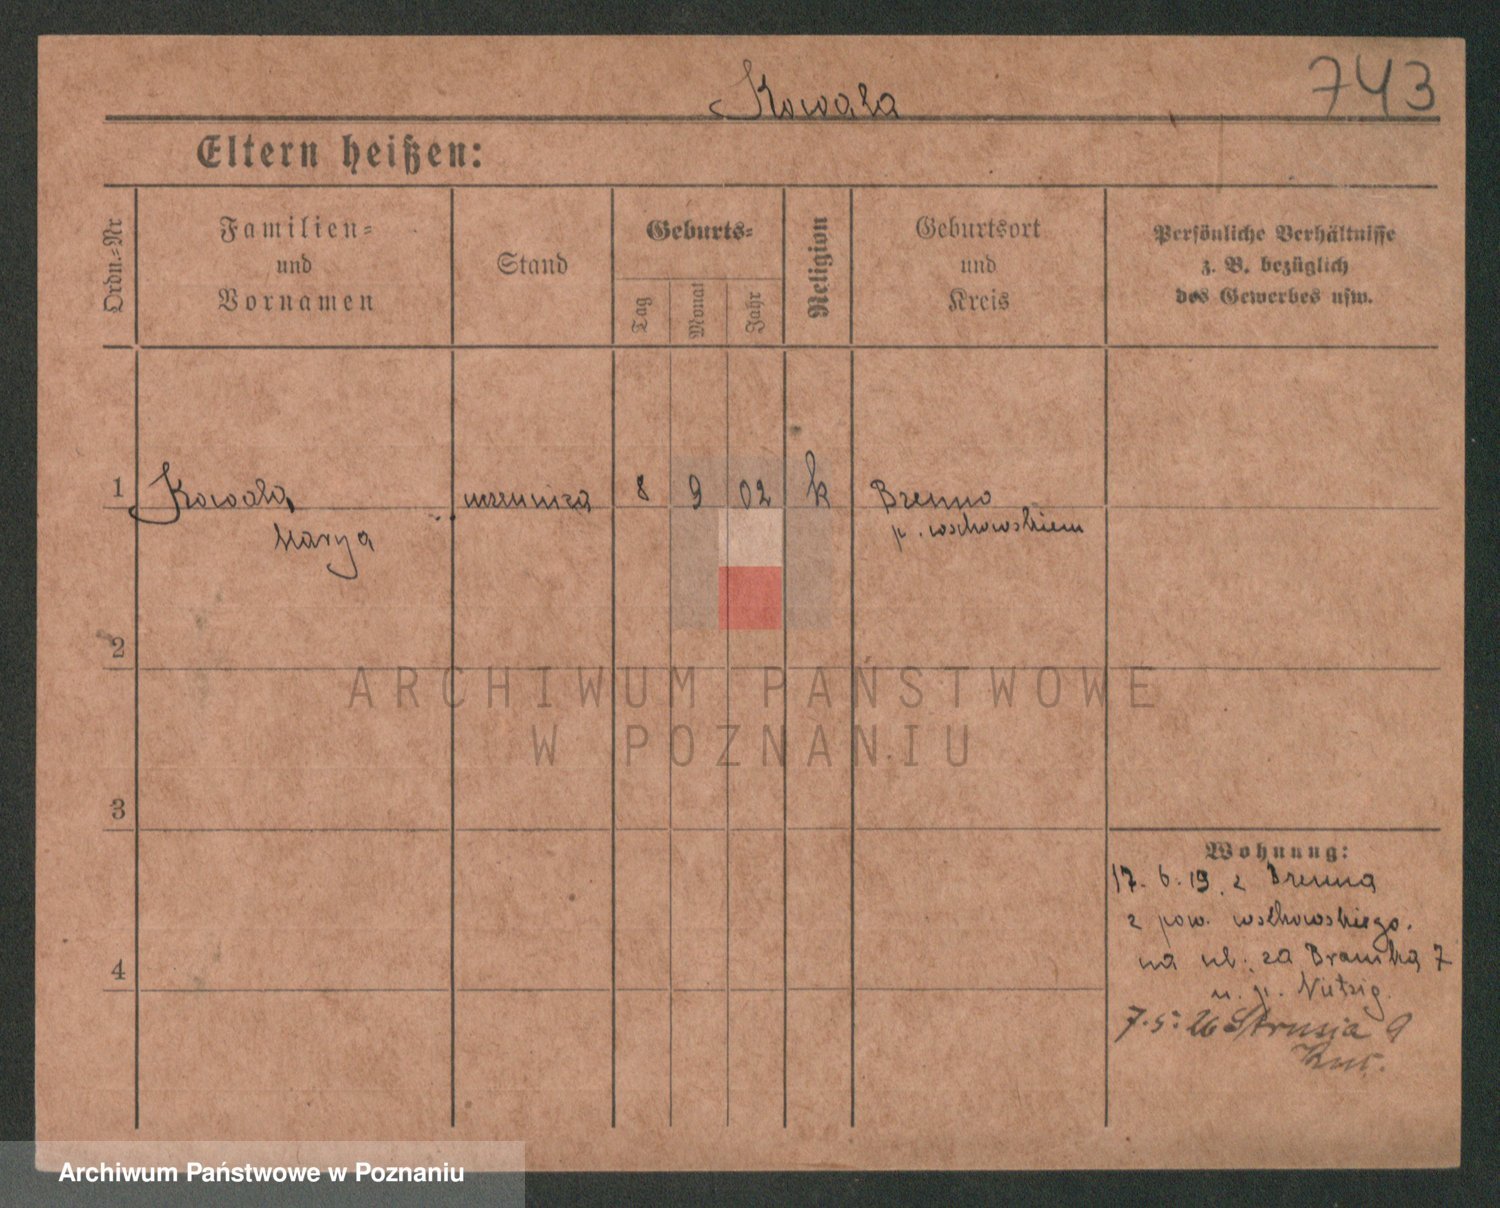 Kowala
743
Eltern heißen:
Ordn.-Nr
Familien-
und
Vornamen
Stand
Geburts-
Tag
Monat
Jahr
Religion
Geburtsort
und
Kreis
Persönliche Verhältnisse
z. B. bezüglich
des Gewerbes usw.
1 Kowala, uczennica 8 9 02 k Brenno
Marya p. wschowskiem
2
ARCHIWUM PAŃSTWOWE
W POZNANIU
3
Wohnung:
17. 6. 19. z Brenna
z pow. wschowskiego.
na ul. za Bramką 7
u. p.
4
7. 5. 26 Strusia 9
Archiwum Państwowe w Poznaniu